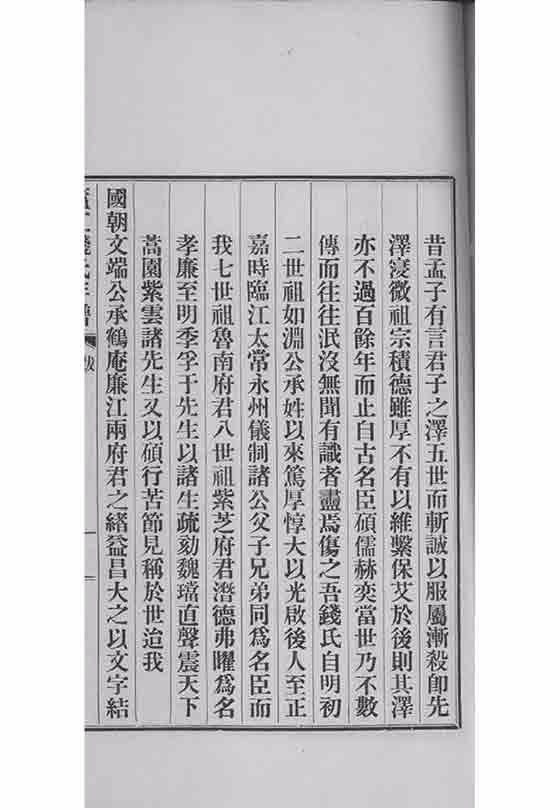 昔孟子有言君子之澤五世而斬誠以服屬漸殺卽先
澤寖微祖宗積德雖厚不有以維繫保艾於後則其澤
亦不過百餘年而止自古名臣碩儒赫奕當世乃不數
傳而往往泯沒無聞有識者盡焉傷之吾錢氏自明初
二世祖如淵公承姓以來篤厚惇大以光啟後人至正
嘉時臨江太常永州儀制諸公父子兄弟同爲名臣而
我七世祖魯南府君八世祖紫芝府君潛德弗曜爲名
孝廉至明季孚于先生以諸生疏劾魏璫直聲震天下
蒿園紫雲諸先生又以碩行苦節見稱於世迨我
國朝文端公承鶴庵廉江兩府君之緖益昌大之以文字結
錢氏年譜 跋